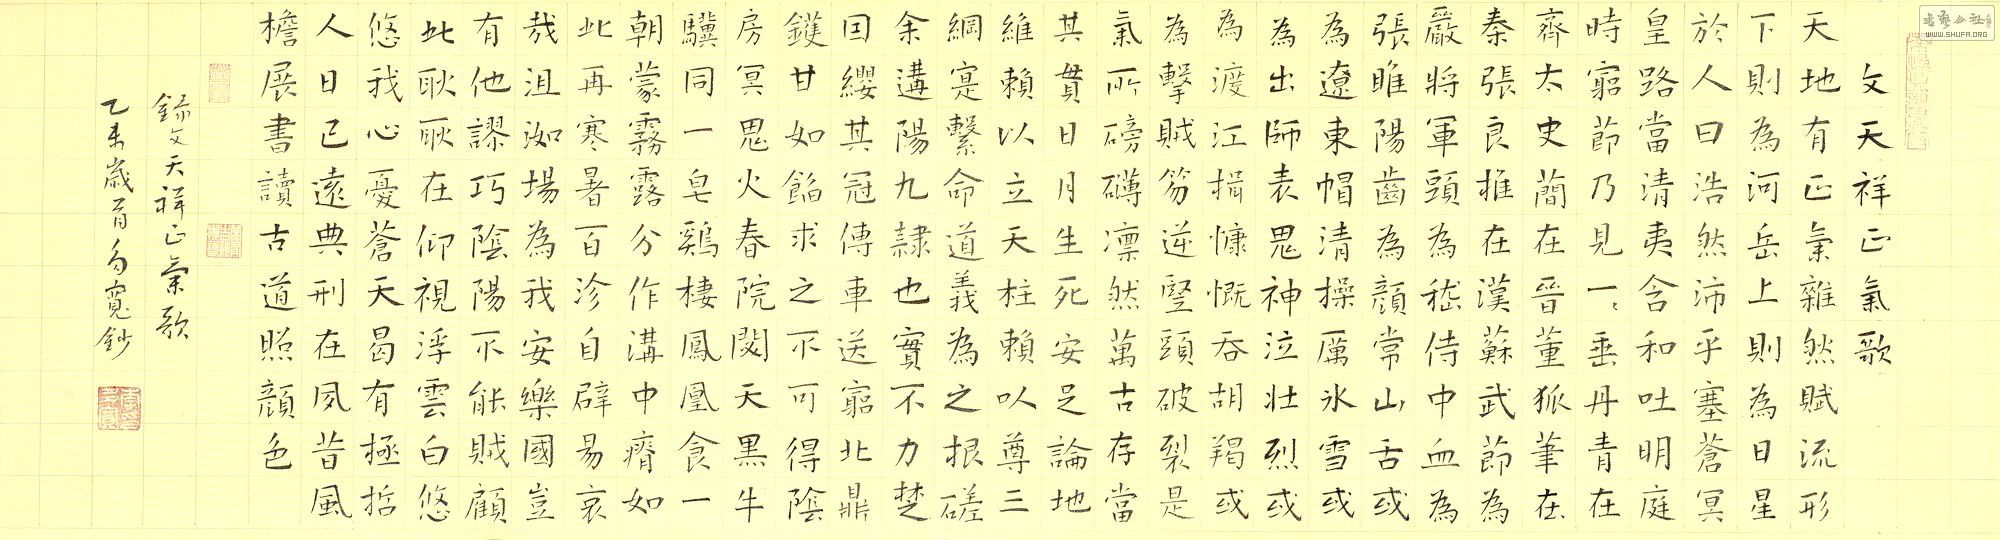 文天祥正氣歌
天地有正氣雜然賦流形
下則為河岳上則為日星
於人曰浩然沛乎塞蒼冥
皇路當清夷含和吐明庭
時窮節乃見一、垂丹青在
齊太史簡在晉董狐筆在
秦張良椎在漢蘇武節為
嚴將軍頭為嵇侍中血為
張睢陽齒為顏常山舌或
為遼東帽清操厲氷雪或
為出師表鬼神泣壯烈或
為渡江楫慷慨吞胡羯或
為擊賊笏逆豎頭破裂是
氣所磅礴凜然萬古存當
其貫日月生死安足論地
維賴以立天柱賴以尊三
綱寔繫命道義為之根磋
余遘陽九隸也實不力楚
囯纓其冠傳車送窮北鼎
鑊甘如飴求之不可得陰
房冥鬼火春院閟天黑牛
驥同一皂鷄棲鳳凰食一
朝蒙霧露分作溝中瘠如
此再寒暑百沴自辟易哀
哉沮洳場為我安樂國豈
有他謬巧陰陽不能賊顧
此耿耿在仰視浮雲白悠
悠我心憂蒼天曷有極哲
人日已遠典刑在夙昔風
檐展書讀古道照顏色
錄文天祥正氣歌
乙未歲首勿寬鈔
WWW.SHUFA.ORG